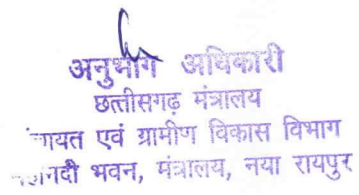 अनुभाग अधिकारी
छत्तीसगढ़ मंत्रालय
एवं ग्रामीण विकास विभाग
भवन, मंत्रालय, नया रायपुर